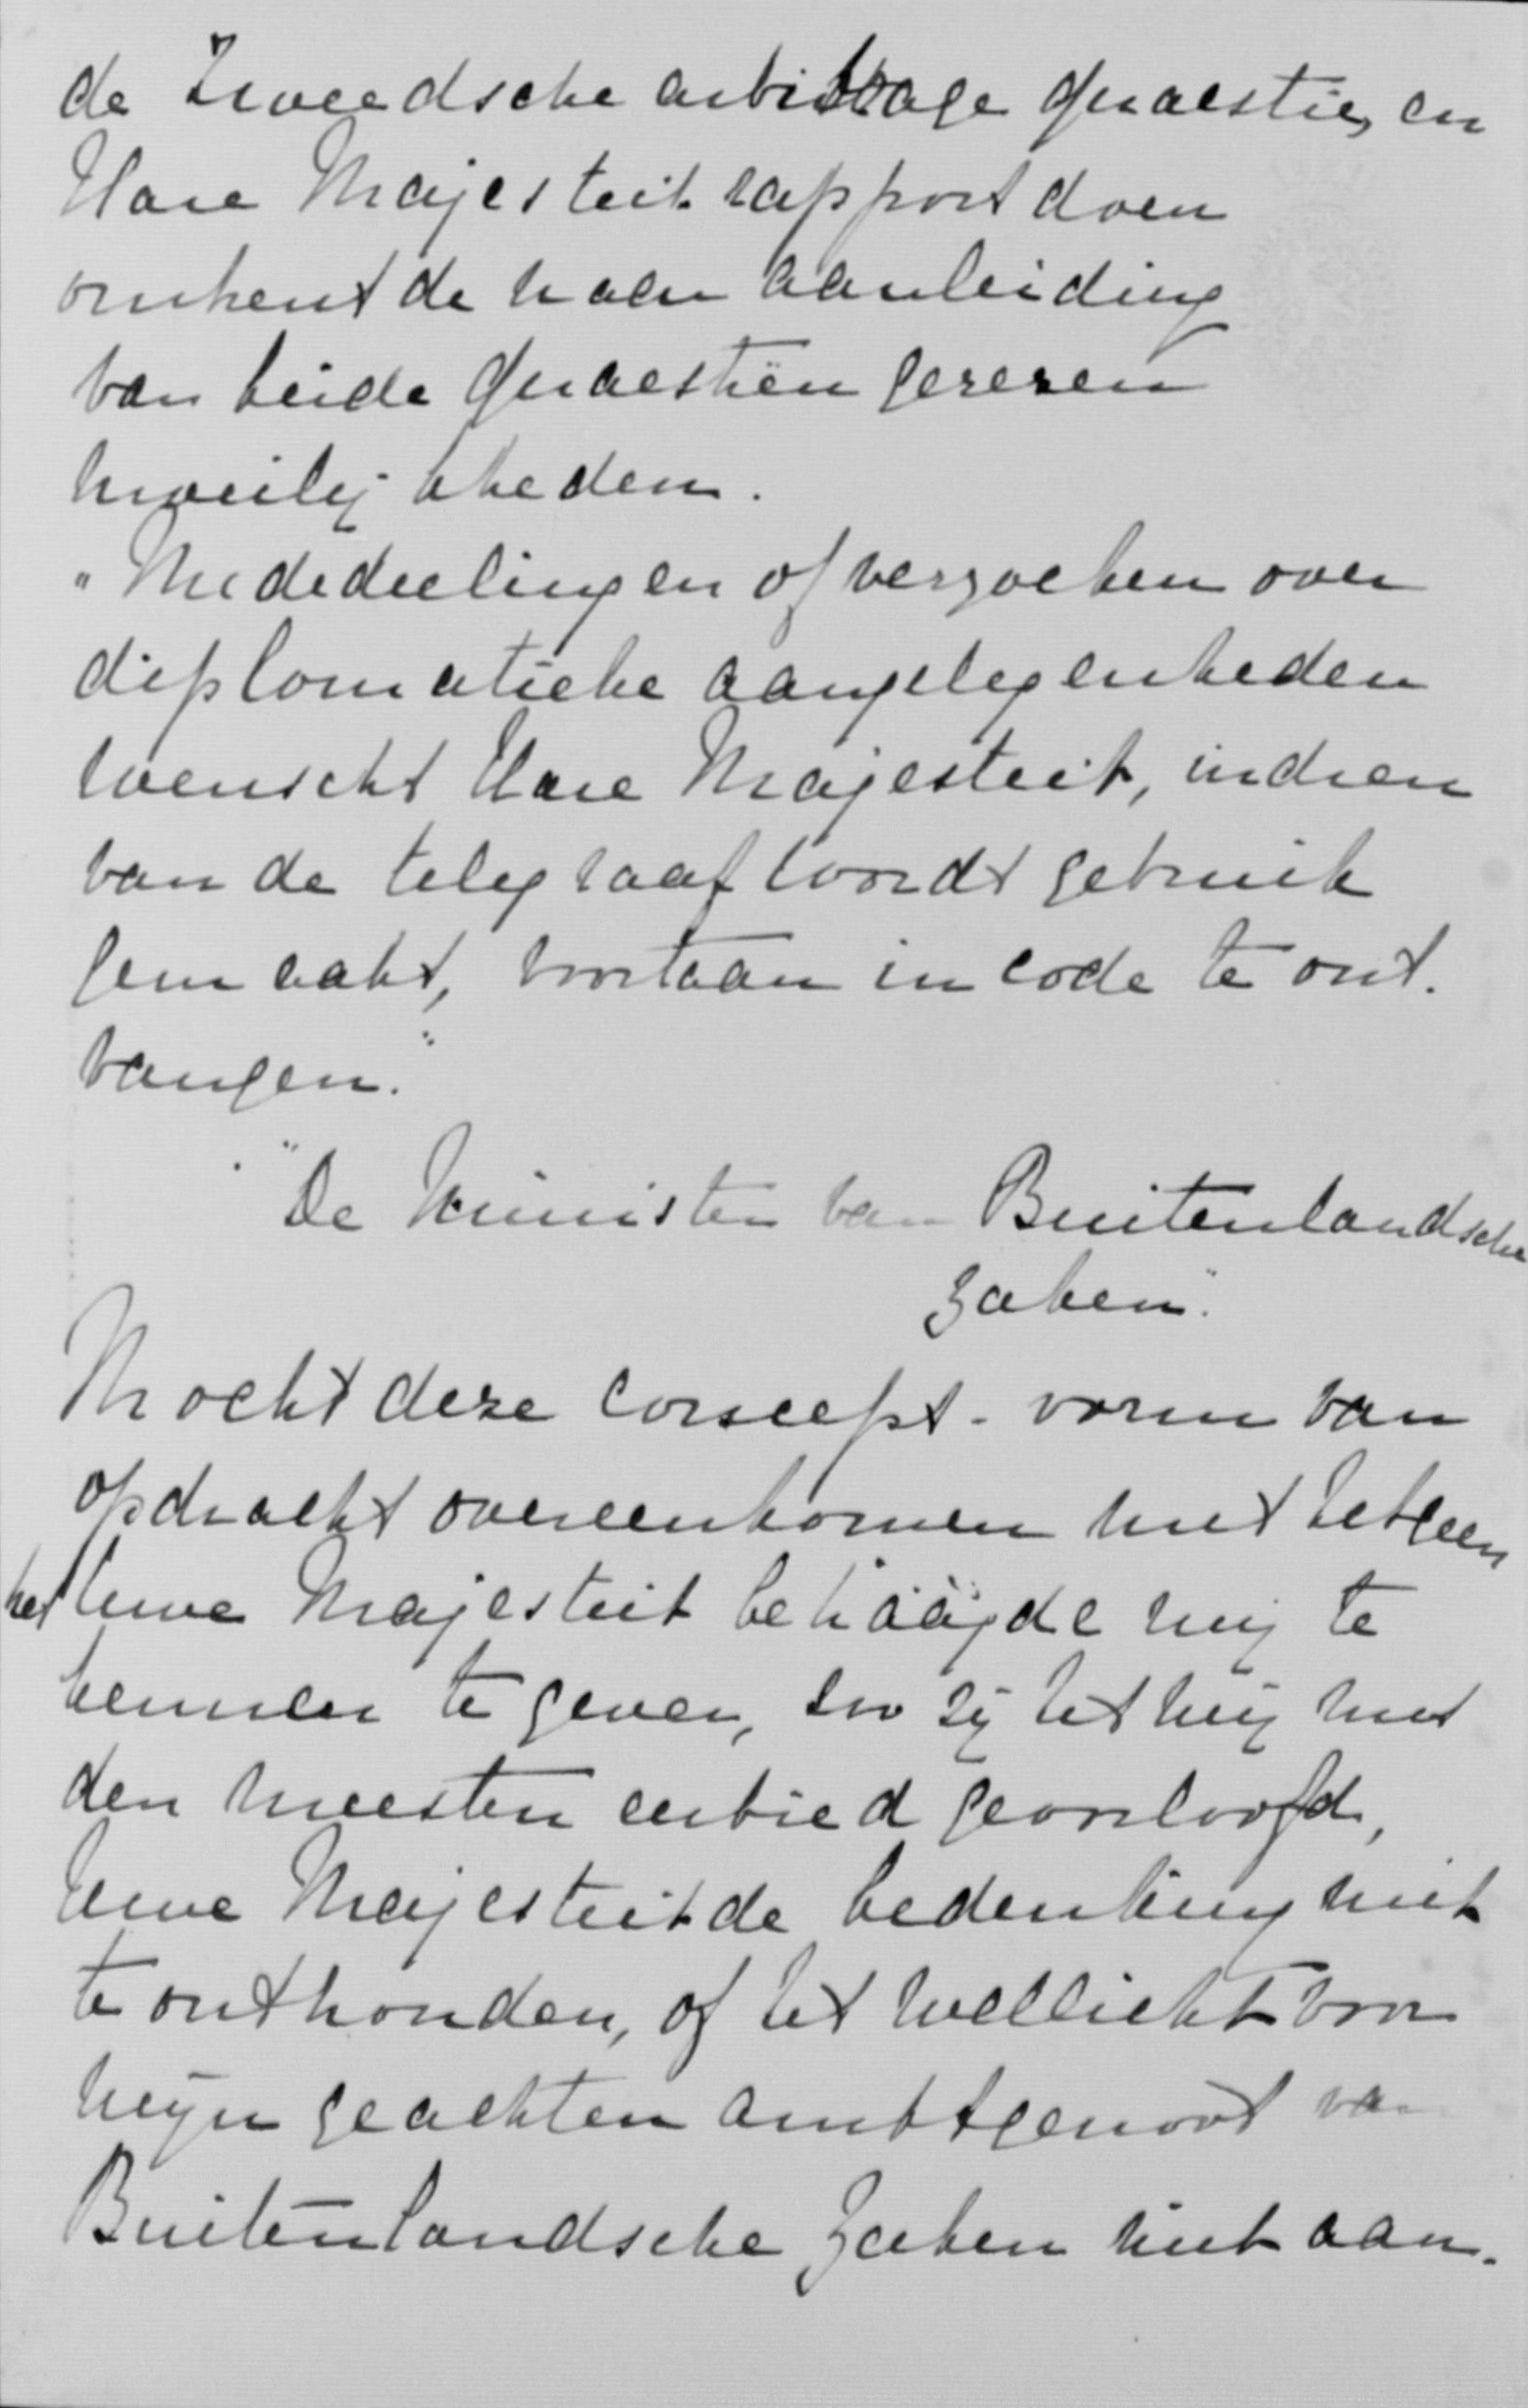 de Zweedsche arbitrage quaestie, en
Hare Majesteit rapport doen
omtrent de naar aanleiding
van beide quaestiën gerezen
moeilijkheden.
"Mededeelingen of verzoeken over
diplomatieke aangelegenheden
wenscht Hare Majesteit, indien
van de telegraaf wordt gebruik
gemaakt, voortaan in code te ont-
vangen."
"De Minister van Buitenlandsche
Zaken".
Mocht deze concept-vorm van
opdracht overeenkomen met hetgeen
het Uwe Majesteit behaagde mij te
kennen te geven, zoo zij het mij met
den meesten eerbied geoorloofd,
Uwe Majesteit de bedenking niet
te onthouden, of het wellicht voor
mijn geachten ambtgenoot van
Buitenlandsche Zaken niet aan-